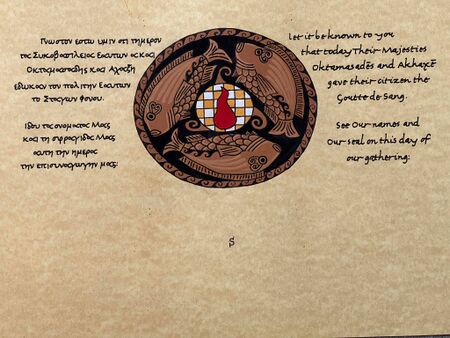 Γνωστον εστω υμιν οτι τημερον
Οκταμασαδης και Αχαξη
εδωκαν τον πολιτην Εαυτων
το Σταγων Φονου.
Ιδου τας ονοματας Μας
και τη σφραγιδος Μας
αυτη την ημερας
την επισυναγωγην μας:
let it be known to you
that today Their Majesties
Oktamasadēs and Akhaxē
gave their citizen the
Goutte de Sang.
See Our names and
Our seal on this day of
our gathering:
S